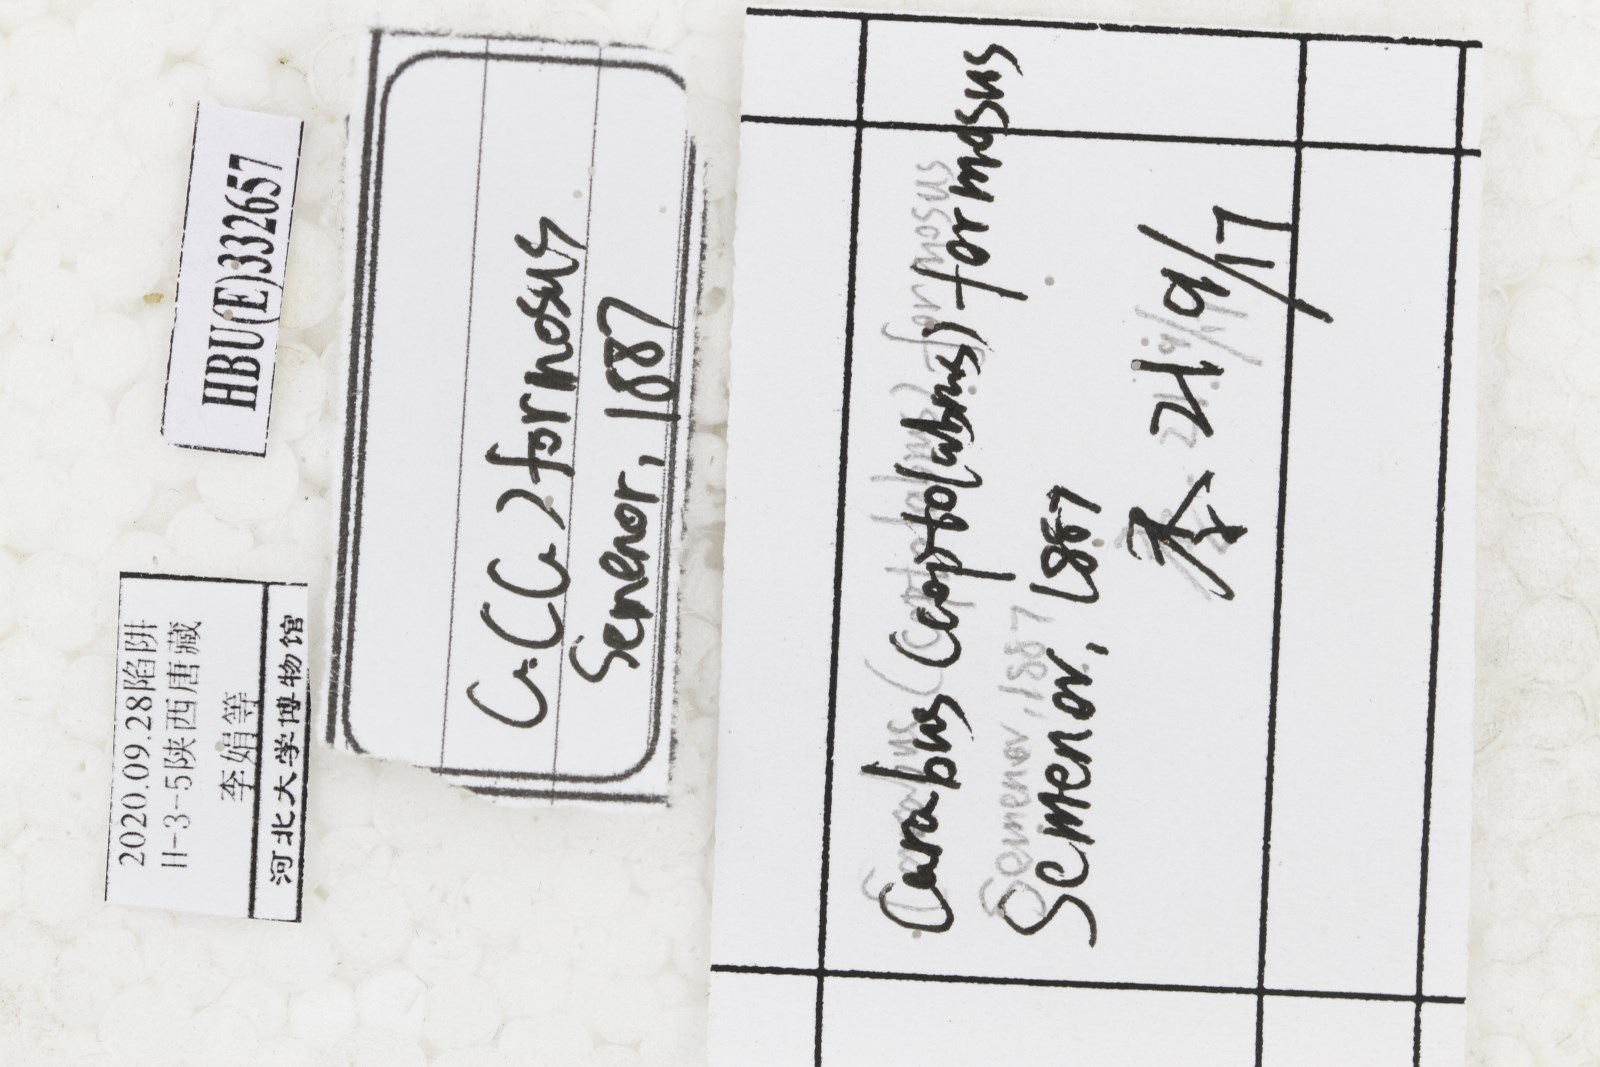 HBU(E)332657
2020.09.28陷阱
11-3-5陕西唐藏
李娟等
河北大学博物馆
C.(C.) formosus
Semenor, 1887
Carabus (coptolabrus) formosus
Semenov, 1887
李 21/9/17